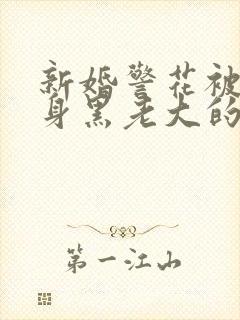 新婚警花被
身黑老大的
第一江山